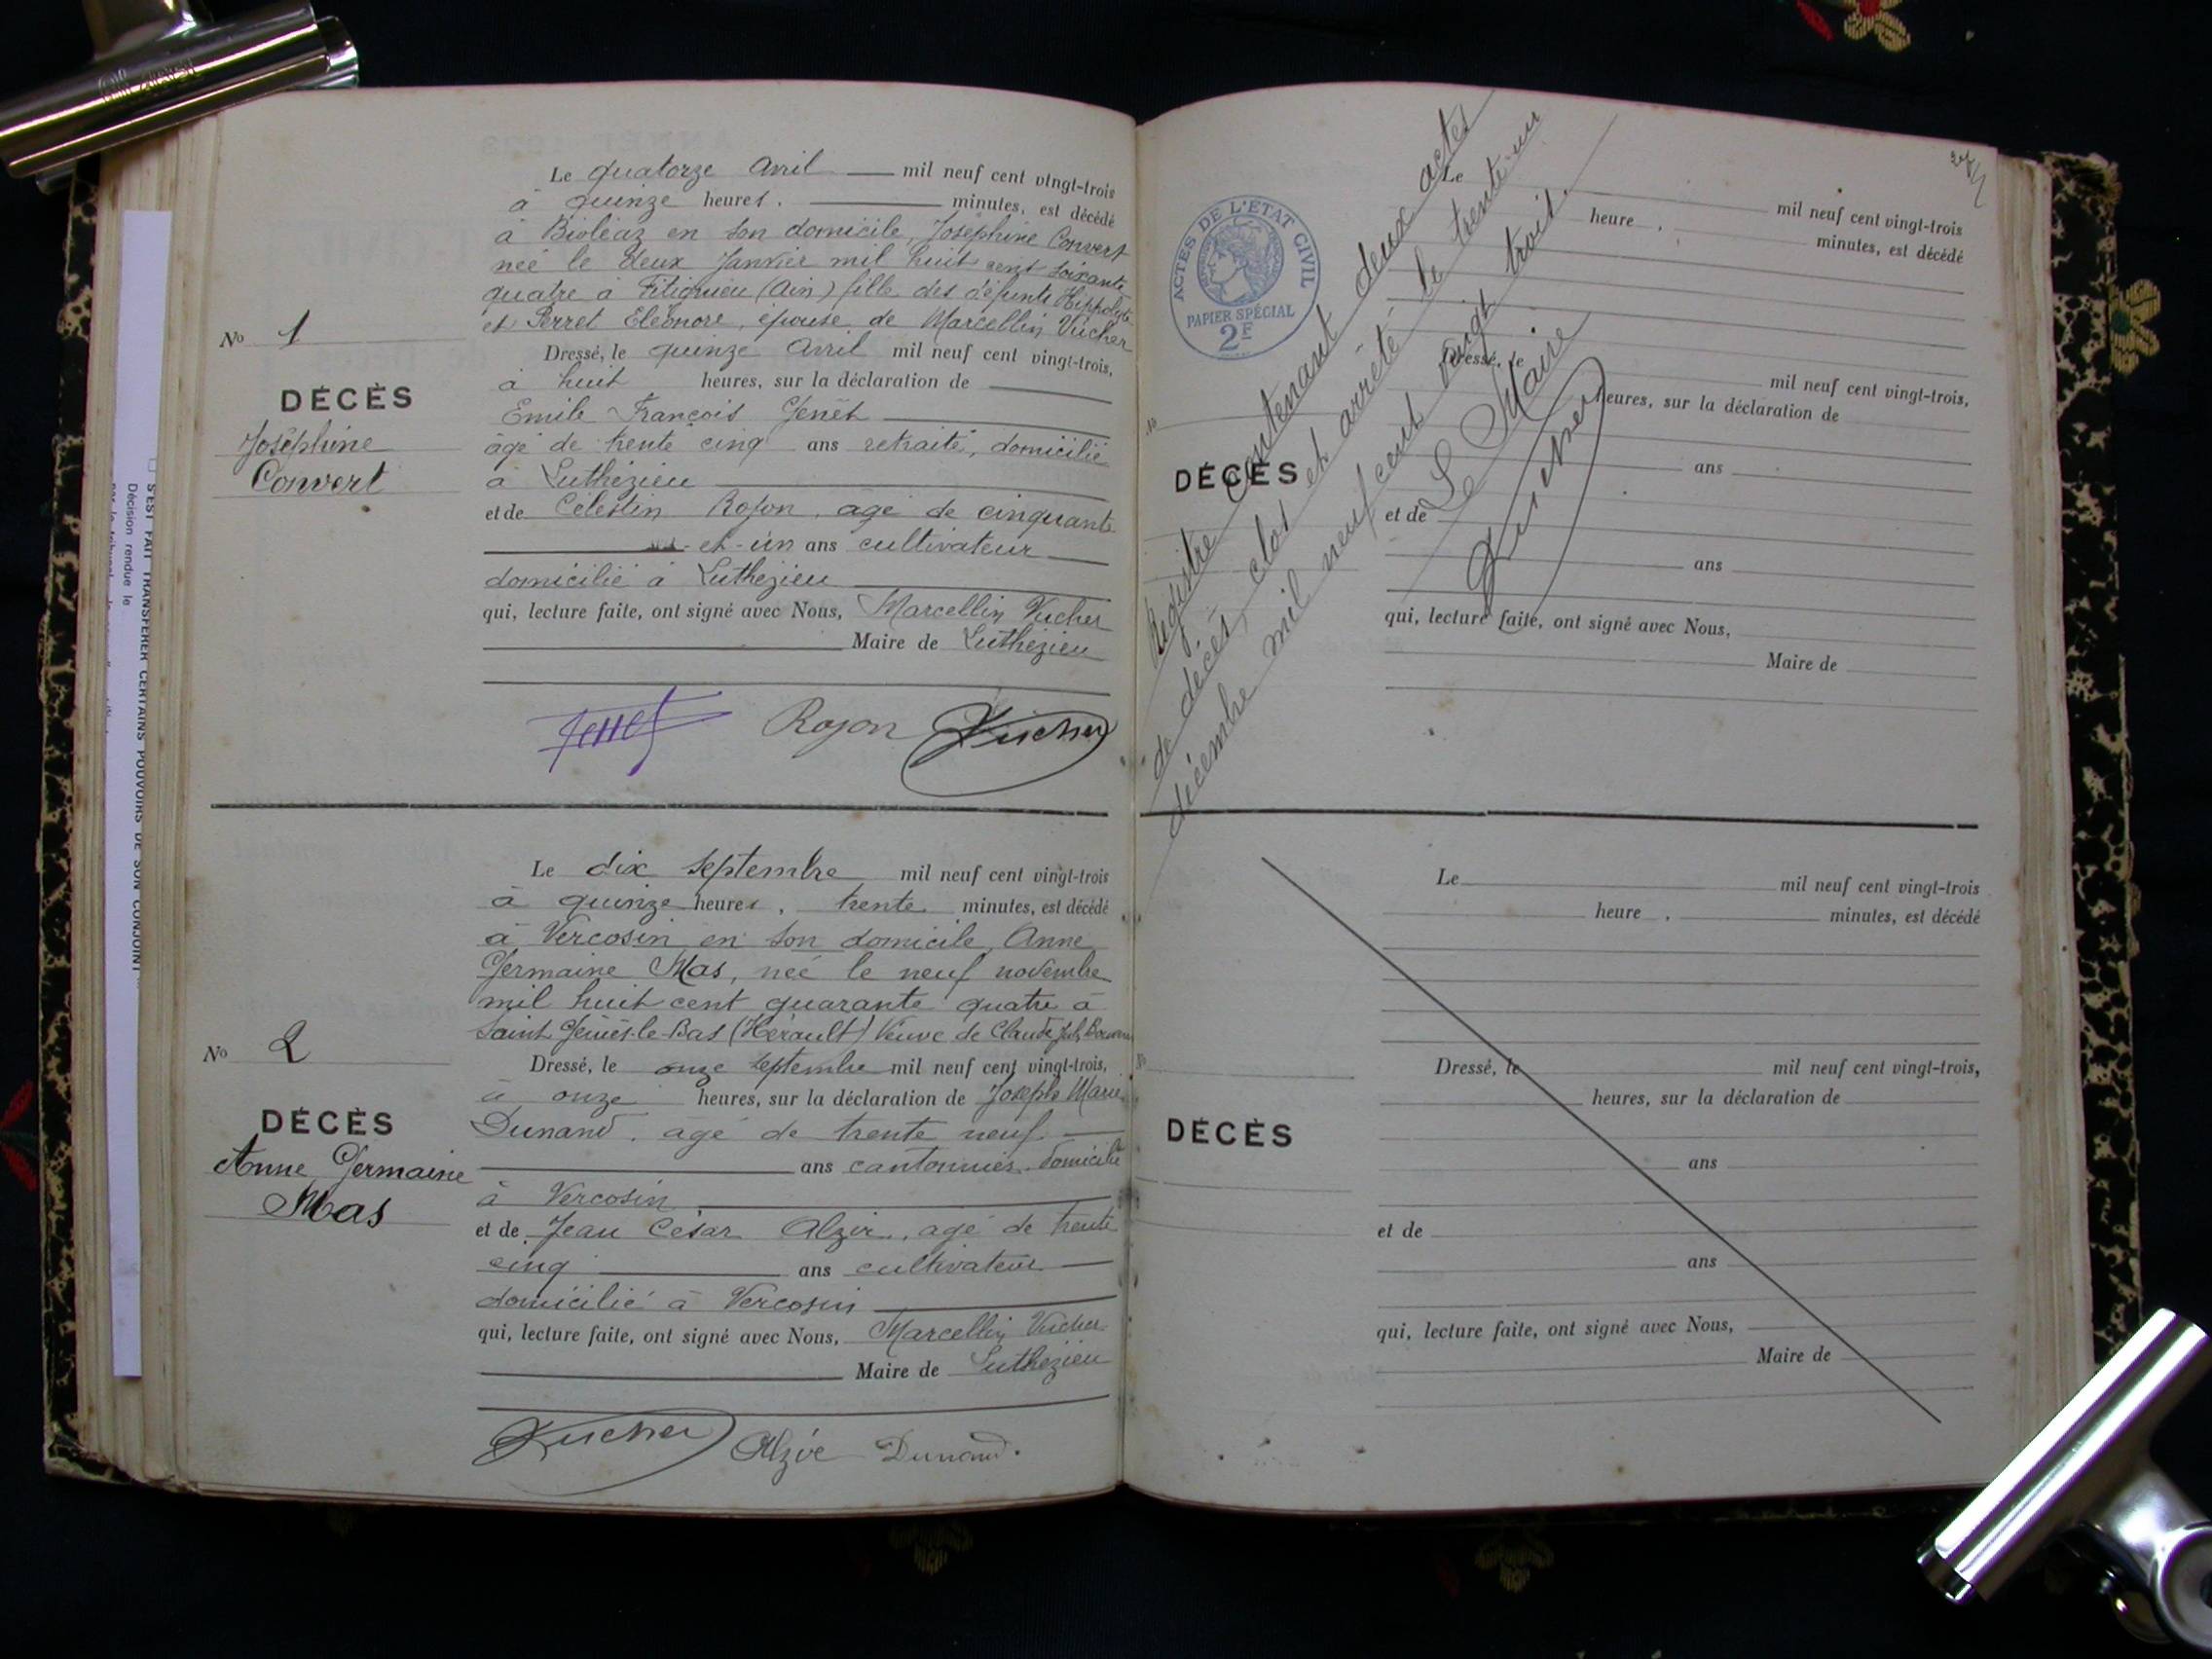 Le quatorze Avril mil neuf cent vingt-trois
à quinze heures, minutes, est décédé
à Bioléaz en son domicile, Joséphine Convert
née le deux Janvier mil huit cent soixante
quatre à Fitignieu (Ain) fille des défunts Hippolyte
et Perret Eléonore, épouse de Marcellin Vucher
No 1
Dressé, le quinze Avril mil neuf cent vingt-trois,
à huit heures, sur la déclaration de
DÉCÈS
Emile François Genêt
Joséphine
Convert
âgé de trente cinq ans retraité, domicilié
à Luthézieu
et de Célestin Rojon, âgé de cinquante
et un ans cultivateur
domicilié à Luthézieu
qui, lecture faite, ont signé avec Nous, Marcellin Vucher
Maire de Luthézieu
Rojon Vucher
Le dix septembre mil neuf cent vingt-trois
à quinze heures, trente minutes, est décédé
à Vercosin en son domicile, Anne
Germaine Mas, née le neuf novembre
mil huit cent quarante quatre à
Saint Geniès-le-Bas (Hérault) Veuve de Claude
No 2
Dressé, le onze septembre mil neuf cent vingt-trois,
à onze heures, sur la déclaration de Joseph Marie
DÉCÈS
Dunand, âgé de trente neuf
Anne Germaine
Mas
ans cantonnier, domicilié
à Vercosin
et de Jean César Alzir, agé de trente
cinq ans cultivateur
domicilié à Vercosin
qui, lecture faite, ont signé avec Nous, Marcellin Vucher
Maire de Luthézieu
Vucher Dunand.
ACTES DE L'ÉTAT CIVIL
PAPIER SPÉCIAL
2F
Registre contenant deux actes
de décès, clos et arrêté le trente un
décembre mil neuf cent vingt trois.
Le Maire
Vucher
Le mil neuf cent vingt-trois
heure , minutes, est décédé
Dressé, le mil neuf cent vingt-trois,
heures, sur la déclaration de
DÉCÈS
ans
et de
ans
qui, lecture faite, ont signé avec Nous,
Maire de
Le mil neuf cent vingt-trois
heure , minutes, est décédé
No
Dressé, le mil neuf cent vingt-trois,
heures, sur la déclaration de
DÉCÈS
ans
et de
ans
qui, lecture faite, ont signé avec Nous,
Maire de
S'EST FAIT TRANSFÉRER CERTAINS POUVOIRS DE SON CONJOINT
Décision rendue le